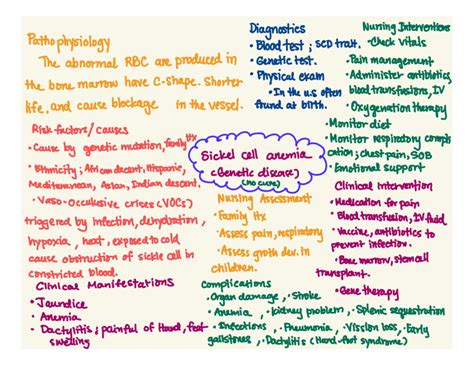 Pathophysiology
The abnormal RBC are produced in
the bone marrow have C-shape. Shorter
life, and cause blockage in the vessel.
Diagnostics
• Blood test; SCD trait.
• Genetic test.
• Physical exam
• In the U.S often
found at birth.
Nursing Interventions
• Check Vitals
• Pain management
• Administer antibiotics,
blood transfusions, IV
• Oxygenation therapy
• Monitor diet
• Monitor respiratory compli
cation; chest pain, SOB
• Emotional support
Risk factors/causes
• Cause by genetic mutation, family Hx
• Ethnicity; African decent, Hispanic,
Mediterranean, Asian, Indian descent.
• Vaso-Occulusive crises (VOCs)
triggered by infection, dehydration,
hypoxia, heat, exposed to cold
cause obstruction of sickle cell in
constricted blood.
Sickel cell anemia
(Genetic disease)
(no cure)
Nursing Assessment
• Family Hx
• Assess pain, respiratory
• Assess groth dev. in
children.
Clinical Intervention
• Medication for pain
• Blood transfusion, IV fluid
• Vaccine, antibiotics to
prevent infection.
• Bone marrow, stem cell
transplant.
• Gene therapy
Clinical Manifestations
• Jaundice
• Anemia
• Dactylitis; painful of Hand, feet
swelling
Complications
• Organ damage, • Stroke
• Anemia, • kidney problem, • Splenic sequestration
• Infections, • Pneumonia, • Vission loss, • Early
gallstones, • Dactylitis (Hand-foot syndrome)